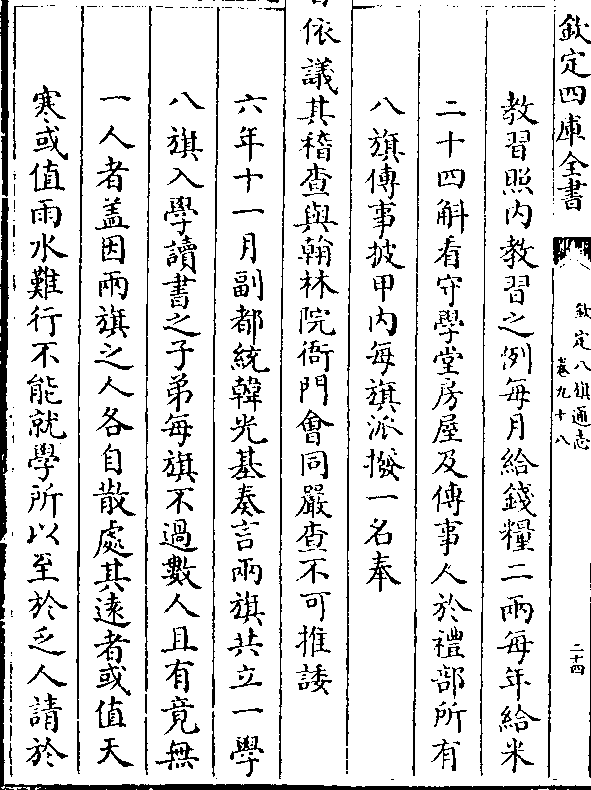 欽定四庫全書
欽定八旗通志
卷九十八
二十四
教習照内教習之例每月給錢糧二兩每年給米
二十四斛看守學堂房屋及傳事人於禮部所有
八旗傳事披甲内每旗派撥一名奉
依議其稽查與翰林院衙門會同嚴查不可推諉
六年十一月副都統韓光基奏言兩旗共立一學
八旗入學讀書之子弟每旗不過數人且有竟無
一人者盖因兩旗之人各自散處其逺者或值天
寒或值雨水難行不能就學所以至於乏人請於